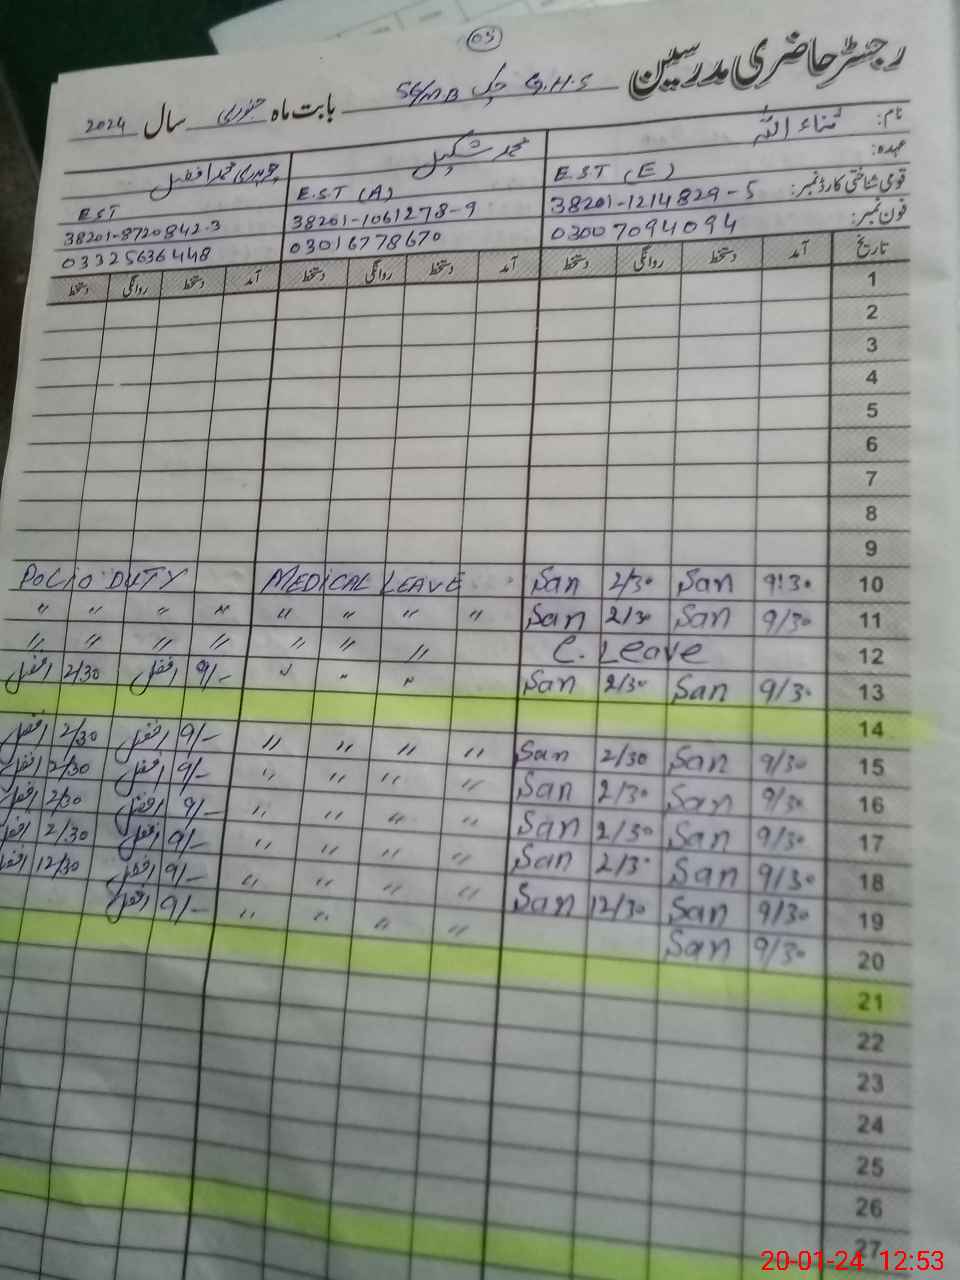 05
رجسٹر حاضری مدرسین
G.H.S چک 56/MB بابت ماہ جنوری سال 2024
نام: ثناء اللہ محمد شکیل چوہدری محمد افضل
عہدہ: E.S.T (E) E.S.T (A) EST
قومی شناختی کارڈ نمبر: 38201-1214829-5 38201-1061278-9 38201-8720842-3
فون نمبر: 03007094094 03016778670 03325636448
تاریخ آمد دستخط روانگی دستخط آمد دستخط روانگی دستخط آمد دستخط روانگی دستخط
1
2
3
4
5
6
7
8
9
10 9:30 San 2/30 San MEDICAL LEAVE POLIO DUTY
11 9/30 San 2/30 San " " " " " " " "
12 C. Leave " " " " " " "
13 9/30 San 2/30 San " " " 9/- افضل 2/30 افضل
14
15 9/30 San 2/30 San " " " " 9/- افضل 2/30 افضل
16 9/30 San 2/30 San " " " " 9/- افضل 2/30 افضل
17 9/30 San 2/30 San " " " " 9/- افضل 2/30 افضل
18 9/30 San 2/30 San " " " " 9/- افضل 2/30 افضل
19 9/30 San 12/30 San " " " " 9/- افضل 12/30 افضل
20 9/30 San " " " " 9/- افضل
21
22
23
24
25
26
27
20-01-24 12:53